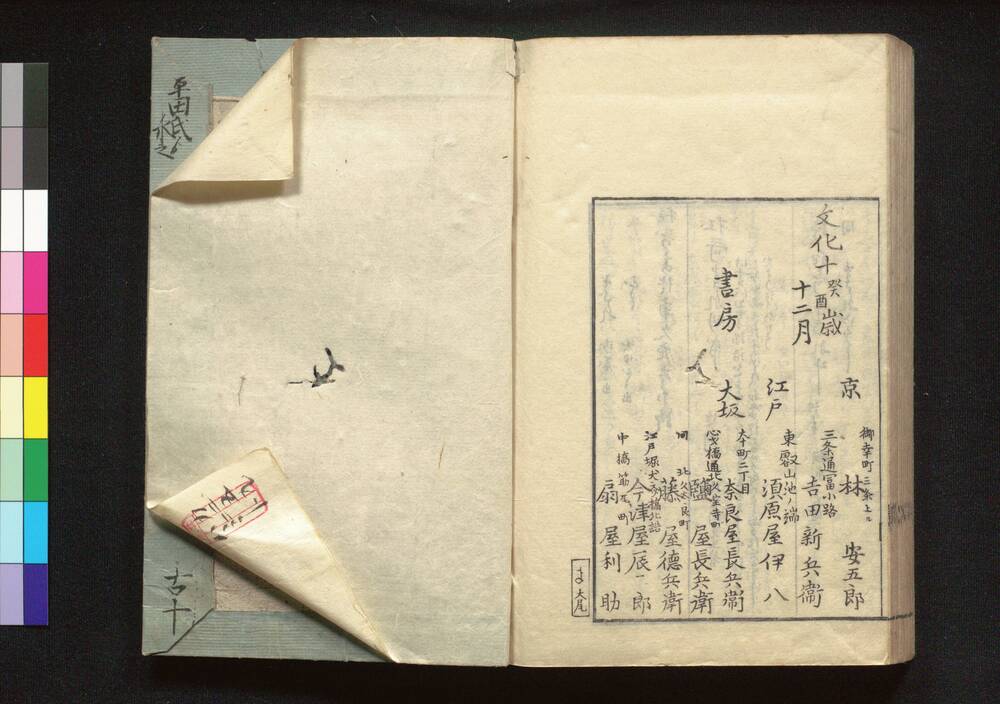 文化十癸酉歳
十二月
京
御幸町三条上ル
林 安五郎
三条通冨小路
吉田新兵衛
江戸
東叡山池ノ端
須原屋伊八
書房
大坂
本町二丁目
奈良屋長兵衛
心斎橋通北久宝寺町
鹽屋長兵衛
同 北久太良町
藤屋徳兵衛
江戸堀犬斎橋北詰
今津屋辰三郎
中橋筋瓦町
扇屋利助
大尾
古十